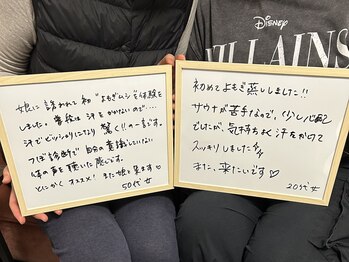 DISNEY
VILLAINS
娘に誘われて初"よもぎムシ"を体験を
しました。普段は汗をかかないので…
汗でビッショリになり驚く!!の一言です。
つぼ診断で自分の意識していない
体の声を聴いた感じです。
とにかくオススメ!また娘と来ます♡
50代女
初めてよもぎ蒸ししました!!
サウナが苦手なので、少し心配
でしたが、気持ちよく汗をかけて
スッキリしました
また、来たいです♡
20代女